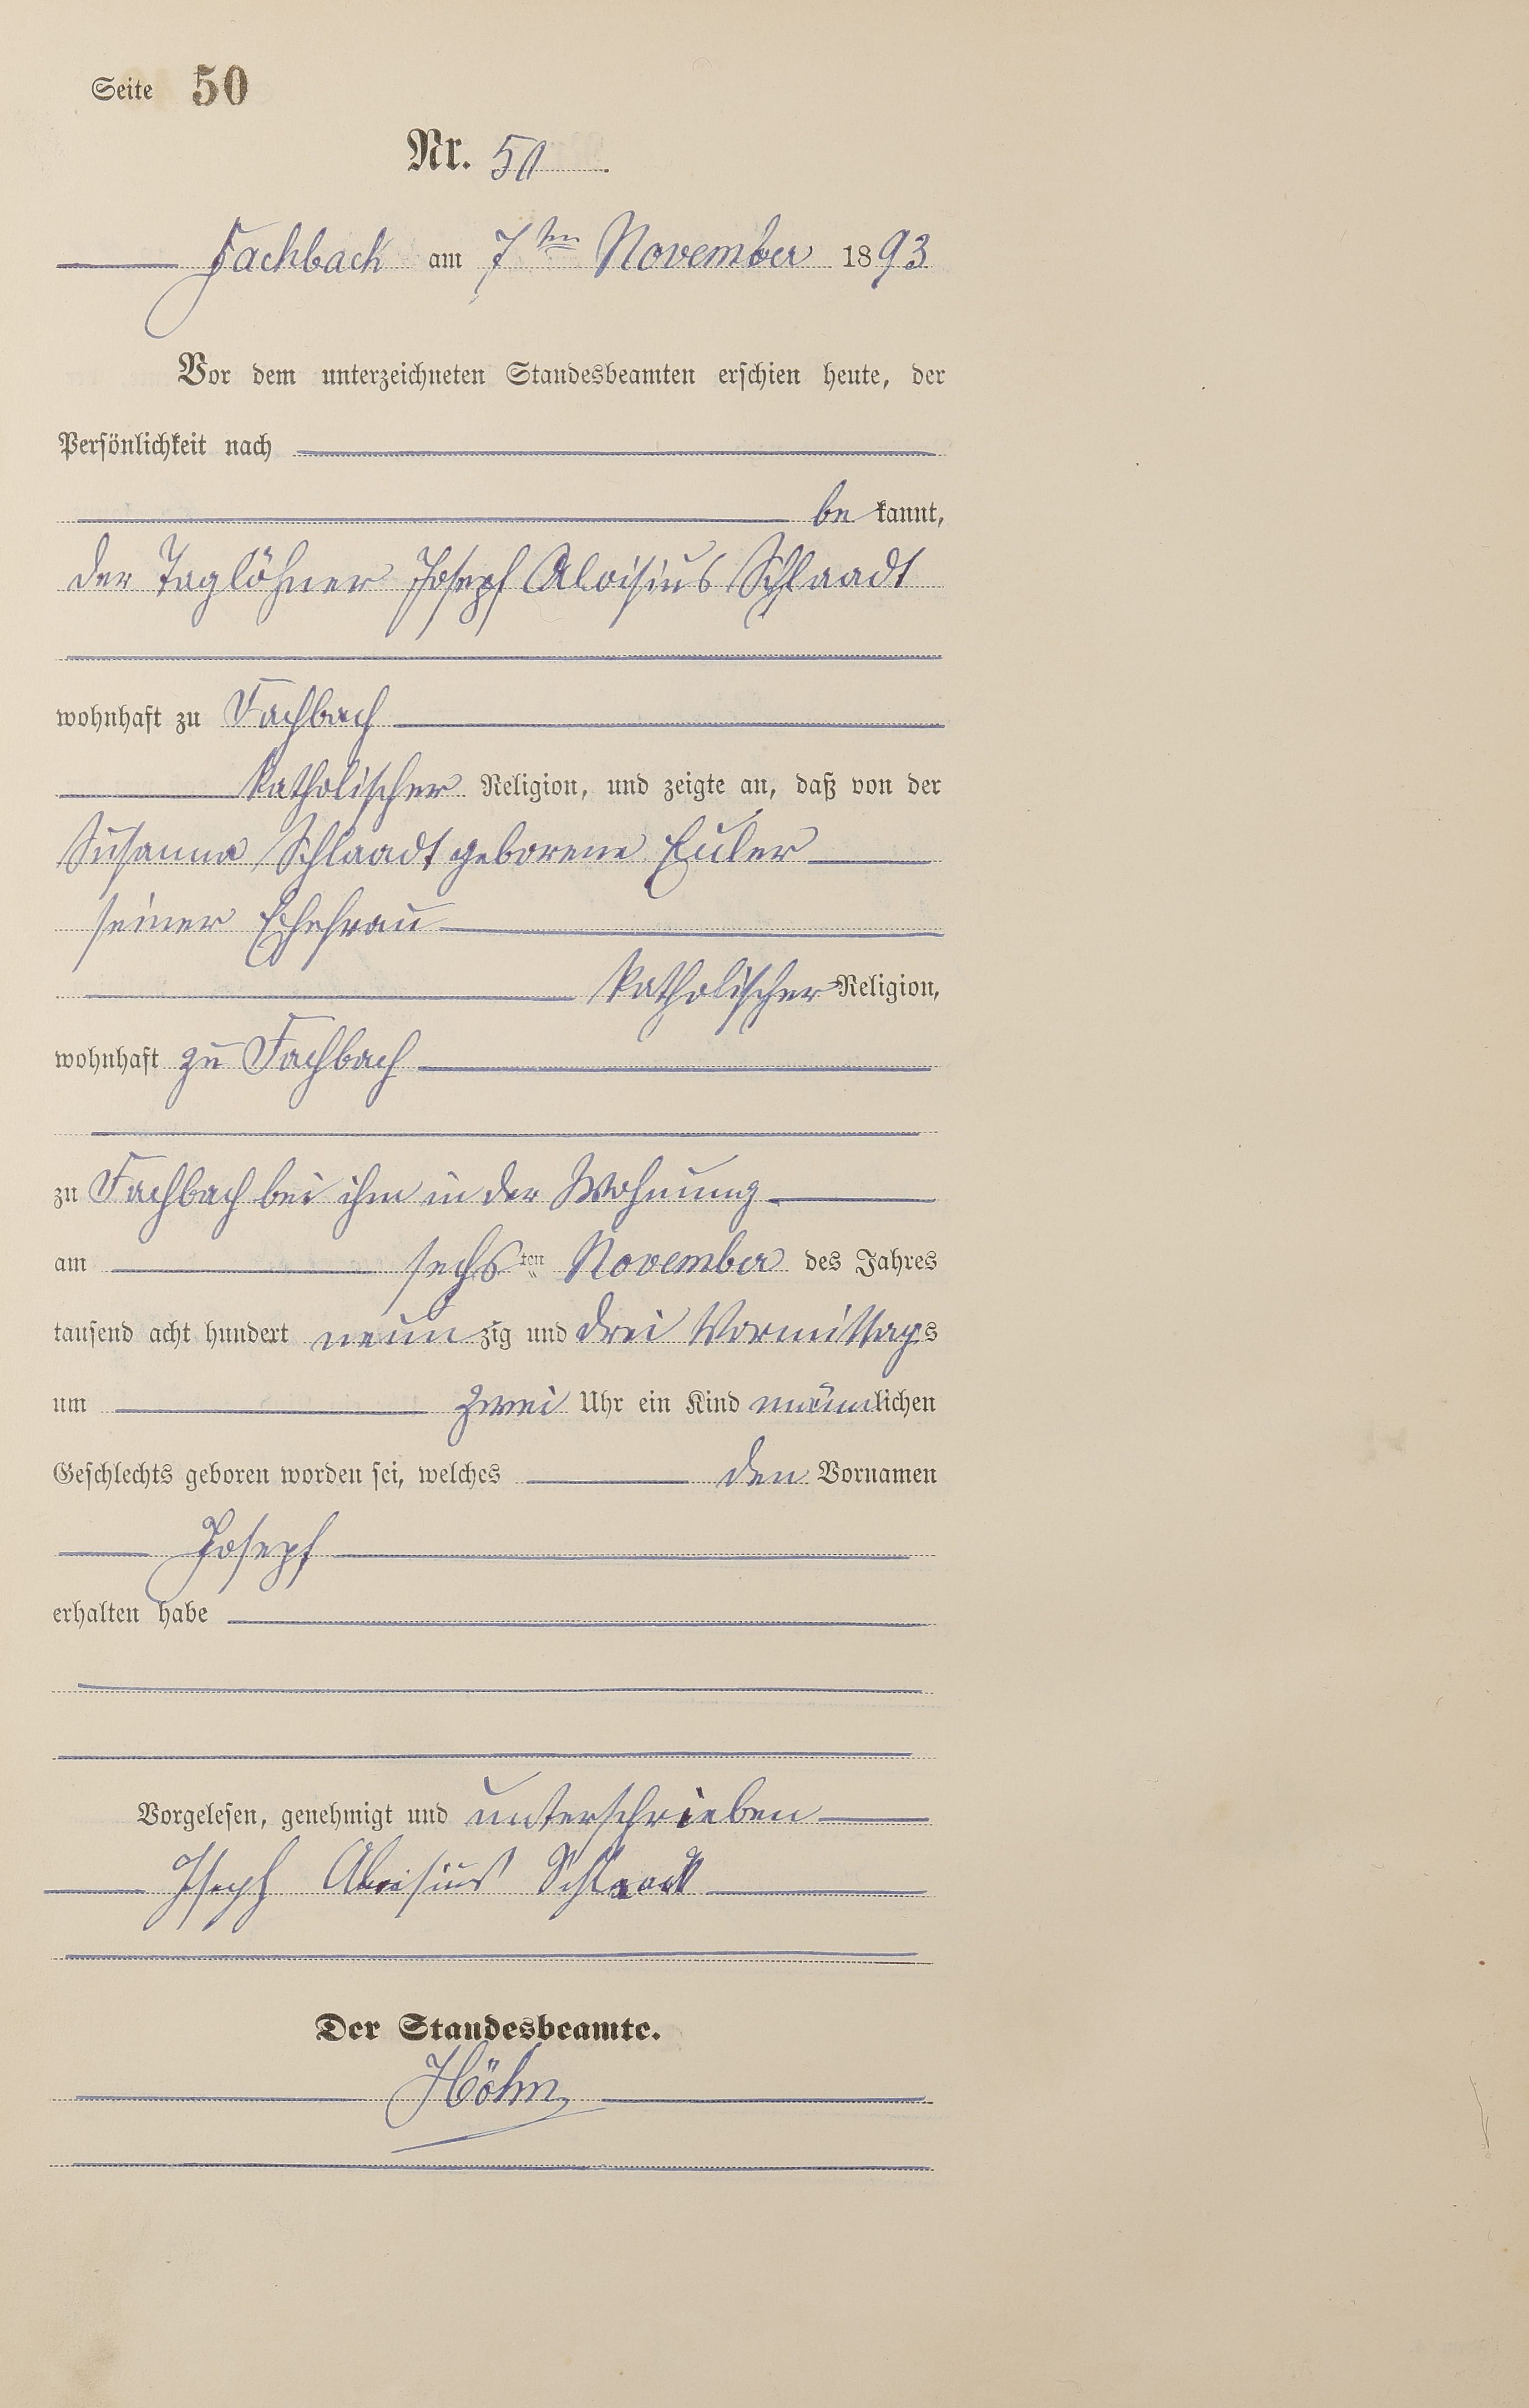 Seite 50
Nr. 50
Fachbach am 7ten November 1893
Vor dem unterzeichneten Standesbeamten erschien heute, der
Persönlichkeit nach
be kannt,
der Taglöhner Joseph Aloisius Schlaadt
wohnhaft zu Fachbach
katholischer Religion, und zeigte an, daß von der
Susanna Schlaadt geborene Euler
seiner Ehefrau
katholischer Religion,
wohnhaft zu Fachbach
zu Fachbach bei ihm in der Wohnung
am sechsten November des Jahres
tausend acht hundert neunzig und drei Vormittags
um zwei Uhr ein Kind männlichen
Geschlechts geboren worden sei, welches den Vornamen
Joseph
erhalten habe
Vorgelesen, genehmigt und unterschrieben
Joseph Aloisius Schlaadt
Der Standesbeamte.
Höhn